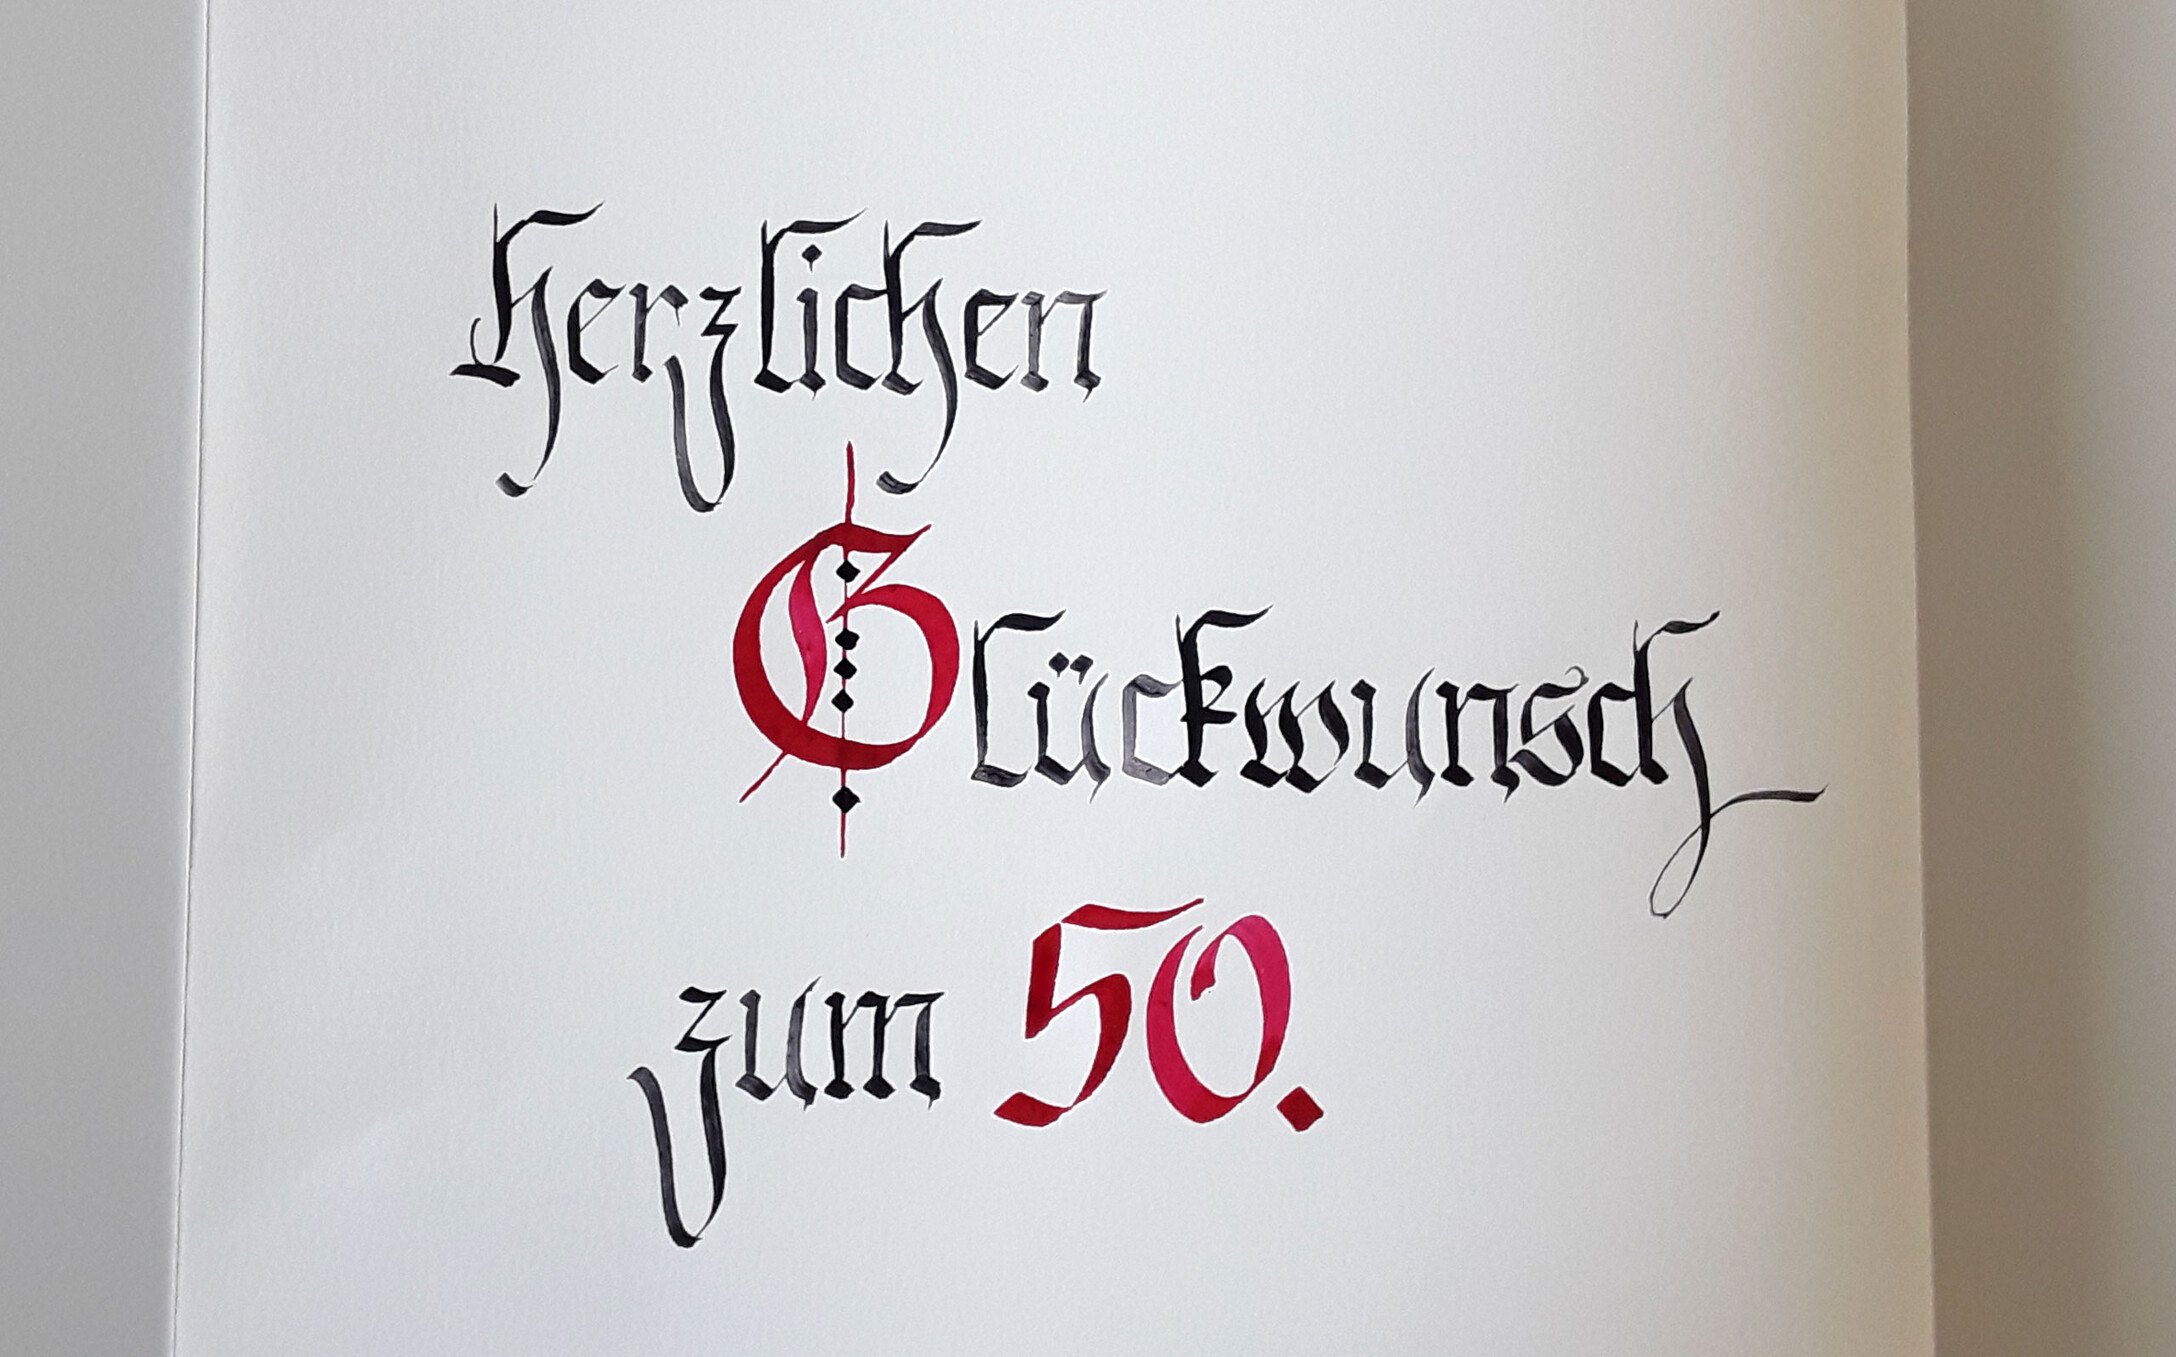 herzlichen
Glückwunsch
zum 50.